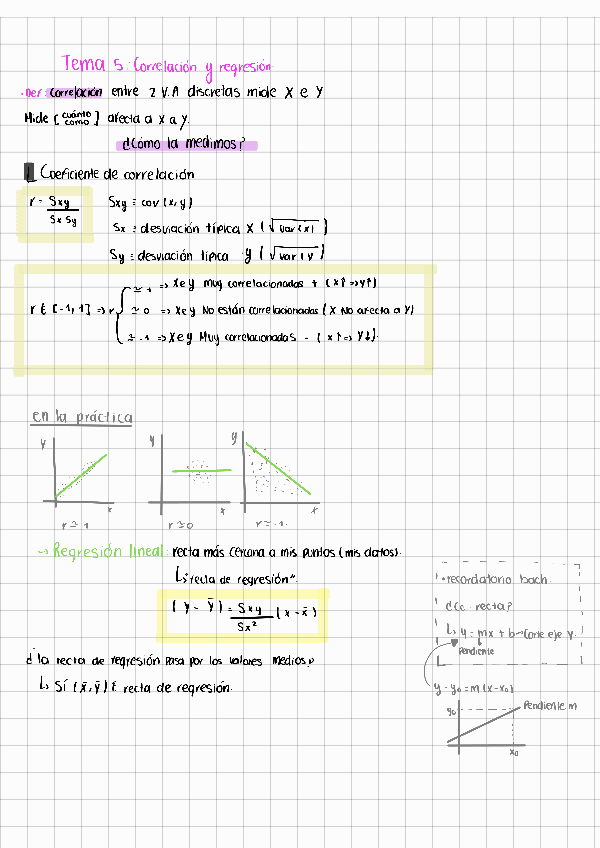 Tema 5: Correlación y regresión
· Def: correlación entre 2 V.A discretas mide X e Y
Mide [cuánto como] afecta a x a y.
¿Cómo la medimos?
1 Coeficiente de correlación
r = Sxy / Sx Sy
Sxy ≡ cov (x,y)
Sx ≡ desviación típica X (√var(x))
Sy ≡ desviación típica y (√var(y))
r ∈ [-1, 1] => r
≃ 1 => X e y muy correlacionadas + (x↑ => y↑)
≃ 0 => X e y No están correlacionadas (X No afecta a Y)
≃ -1 => X e y Muy correlacionadas - (x↑ => y↓).
en la práctica
y x r ≃ 1
y x r ≃ 0
y x r ≃ -1.
→ Regresión lineal: recta más cercana a mis puntos (mis datos).
↳ "recta de regresión".
(y - ȳ) = Sxy / Sx² (x - x̄)
¿la recta de regresión pasa por los valores medios?
↳ Sí (x̄, ȳ) ∈ recta de regresión.
• recordatorio bach.
d Ec. recta?
↳ y = mx + b → Corte eje y.
Pendiente
y - y₀ = m (x - x₀)
y₀
Pendiente m
x₀